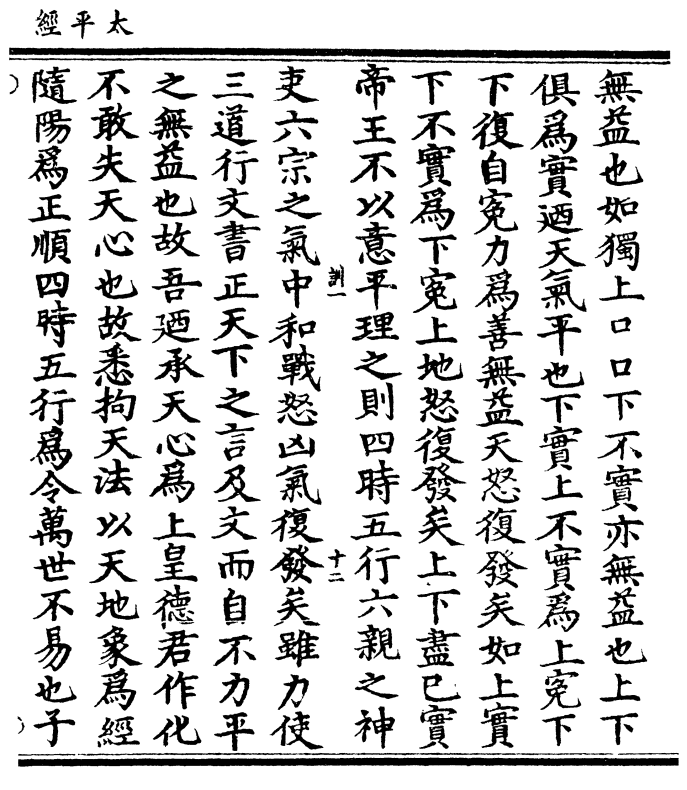 太平經
無益也如獨上口口下不實亦無益也上下
俱爲實迺天氣平也下實上不實爲上冤下
下復自冤力爲善無益天怒復發矣如上實
下不實爲下冤上地怒復發矣上下盡已實
帝王不以意平理之則四時五行六親之神
訓一
十二
吏六宗之氣中和戰怒凶氣復發矣雖力使
三道行文書正天下之言及文而自不力平
之無益也故吾迺承天心爲上皇德君作化
不敢失天心也故悉拘天法以天地象爲經
隨陽爲正順四時五行爲令萬世不易也子